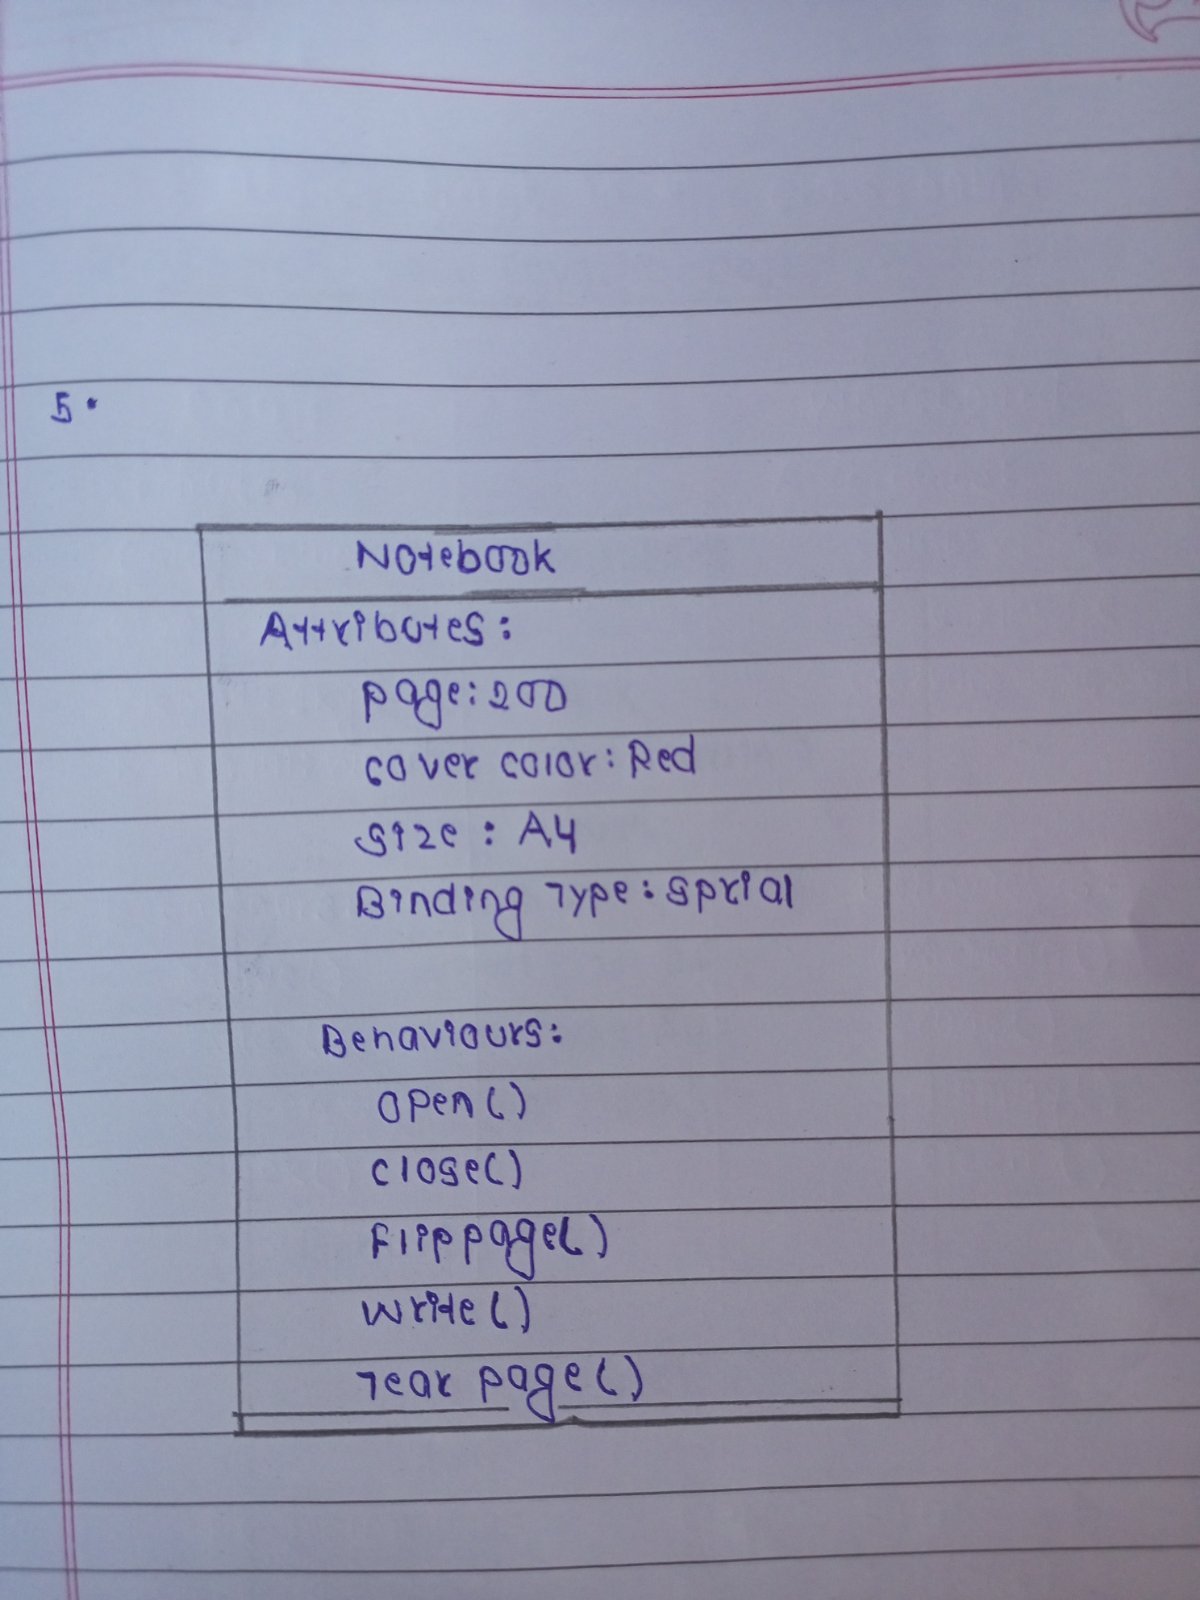 5.
Notebook
Attributes:
page: 200
cover color: Red
size: A4
Binding Type: sprial
Behaviours:
open()
close()
Flip page()
write()
Tear page()